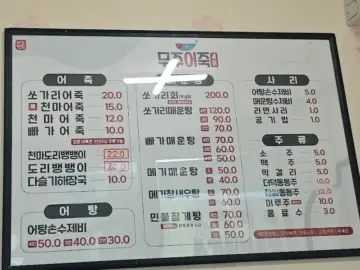 어죽
쏘가리어죽 20.0
천마어죽 15.0
천마어죽 12.0
빠가어죽 10.0
천마도리뱅뱅이 22.0
도리뱅뱅이
다슬기해장국 10.0
어탕
어탕손수제비
50.0 40.0 30.0
쏘가리회 200.0
쏘가리매운탕 120.0
90.0
70.0
빠가매운탕 70.0
60.0
50.0
메기매운탕 60.0
50.0
40.0
70.0
60.0
50.0
민물참게탕 70.0
60.0
50.0
사리
어탕손수제비 5.0
매운탕수제비 4.0
라면사리 1.0
공기밥 1.0
주류
소주 5.0
맥주 5.0
막걸리 5.0
더덕동동주
머루주
음료수 3.0